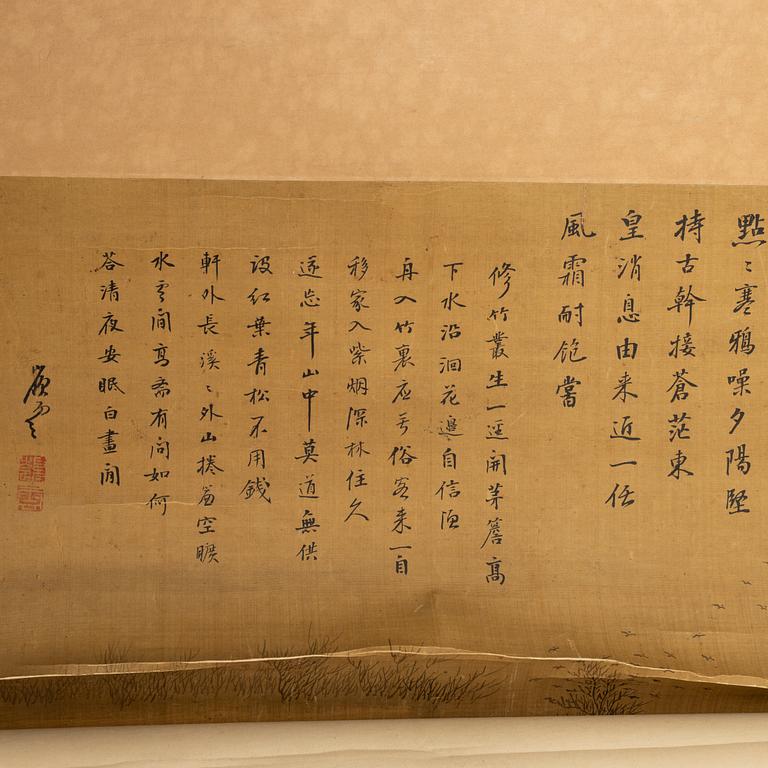 點〻寒鴉噪夕陽堅
持古幹接蒼茫東
皇消息由來近一任
風霜耐飽嘗
修竹叢生一逕開茅簷高
下水沿洄花邊自信
舟入竹裏應無俗客來一自
移家入紫烟深林住久
遂忘年山中莫道無供
設紅葉青松不用錢
軒外長溪〻外山捲簾空曠
水雲間高齋有問如何
答清夜安眠白晝閒